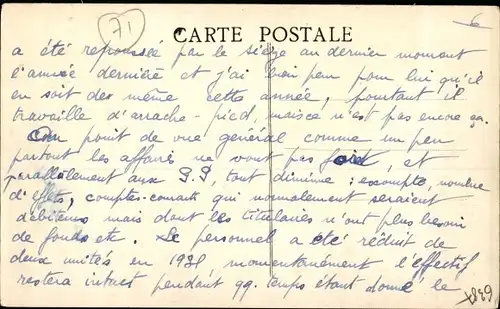 71
CARTE POSTALE
6
a été repoussé par le siège au dernier moment
l'année dernière et j'ai bien peur pour lui qu'il
en soit de même cette année, pourtant il
travaille d'arrache-pied, mais ce n'est pas encore ça.
Au point de vue général comme un peu
partout les affaires ne vont pas fort, et
parallèlement aux tout diminue : escompte, nombre
d'effets, comptes-courants qui normalement seraient
débiteurs mais dont les titulaires n'ont plus besoin
de fonds etc. Le personnel a été réduit de
deux unités en 1938 momentanément l'effectif
restera intact pendant qq. temps étant donné le